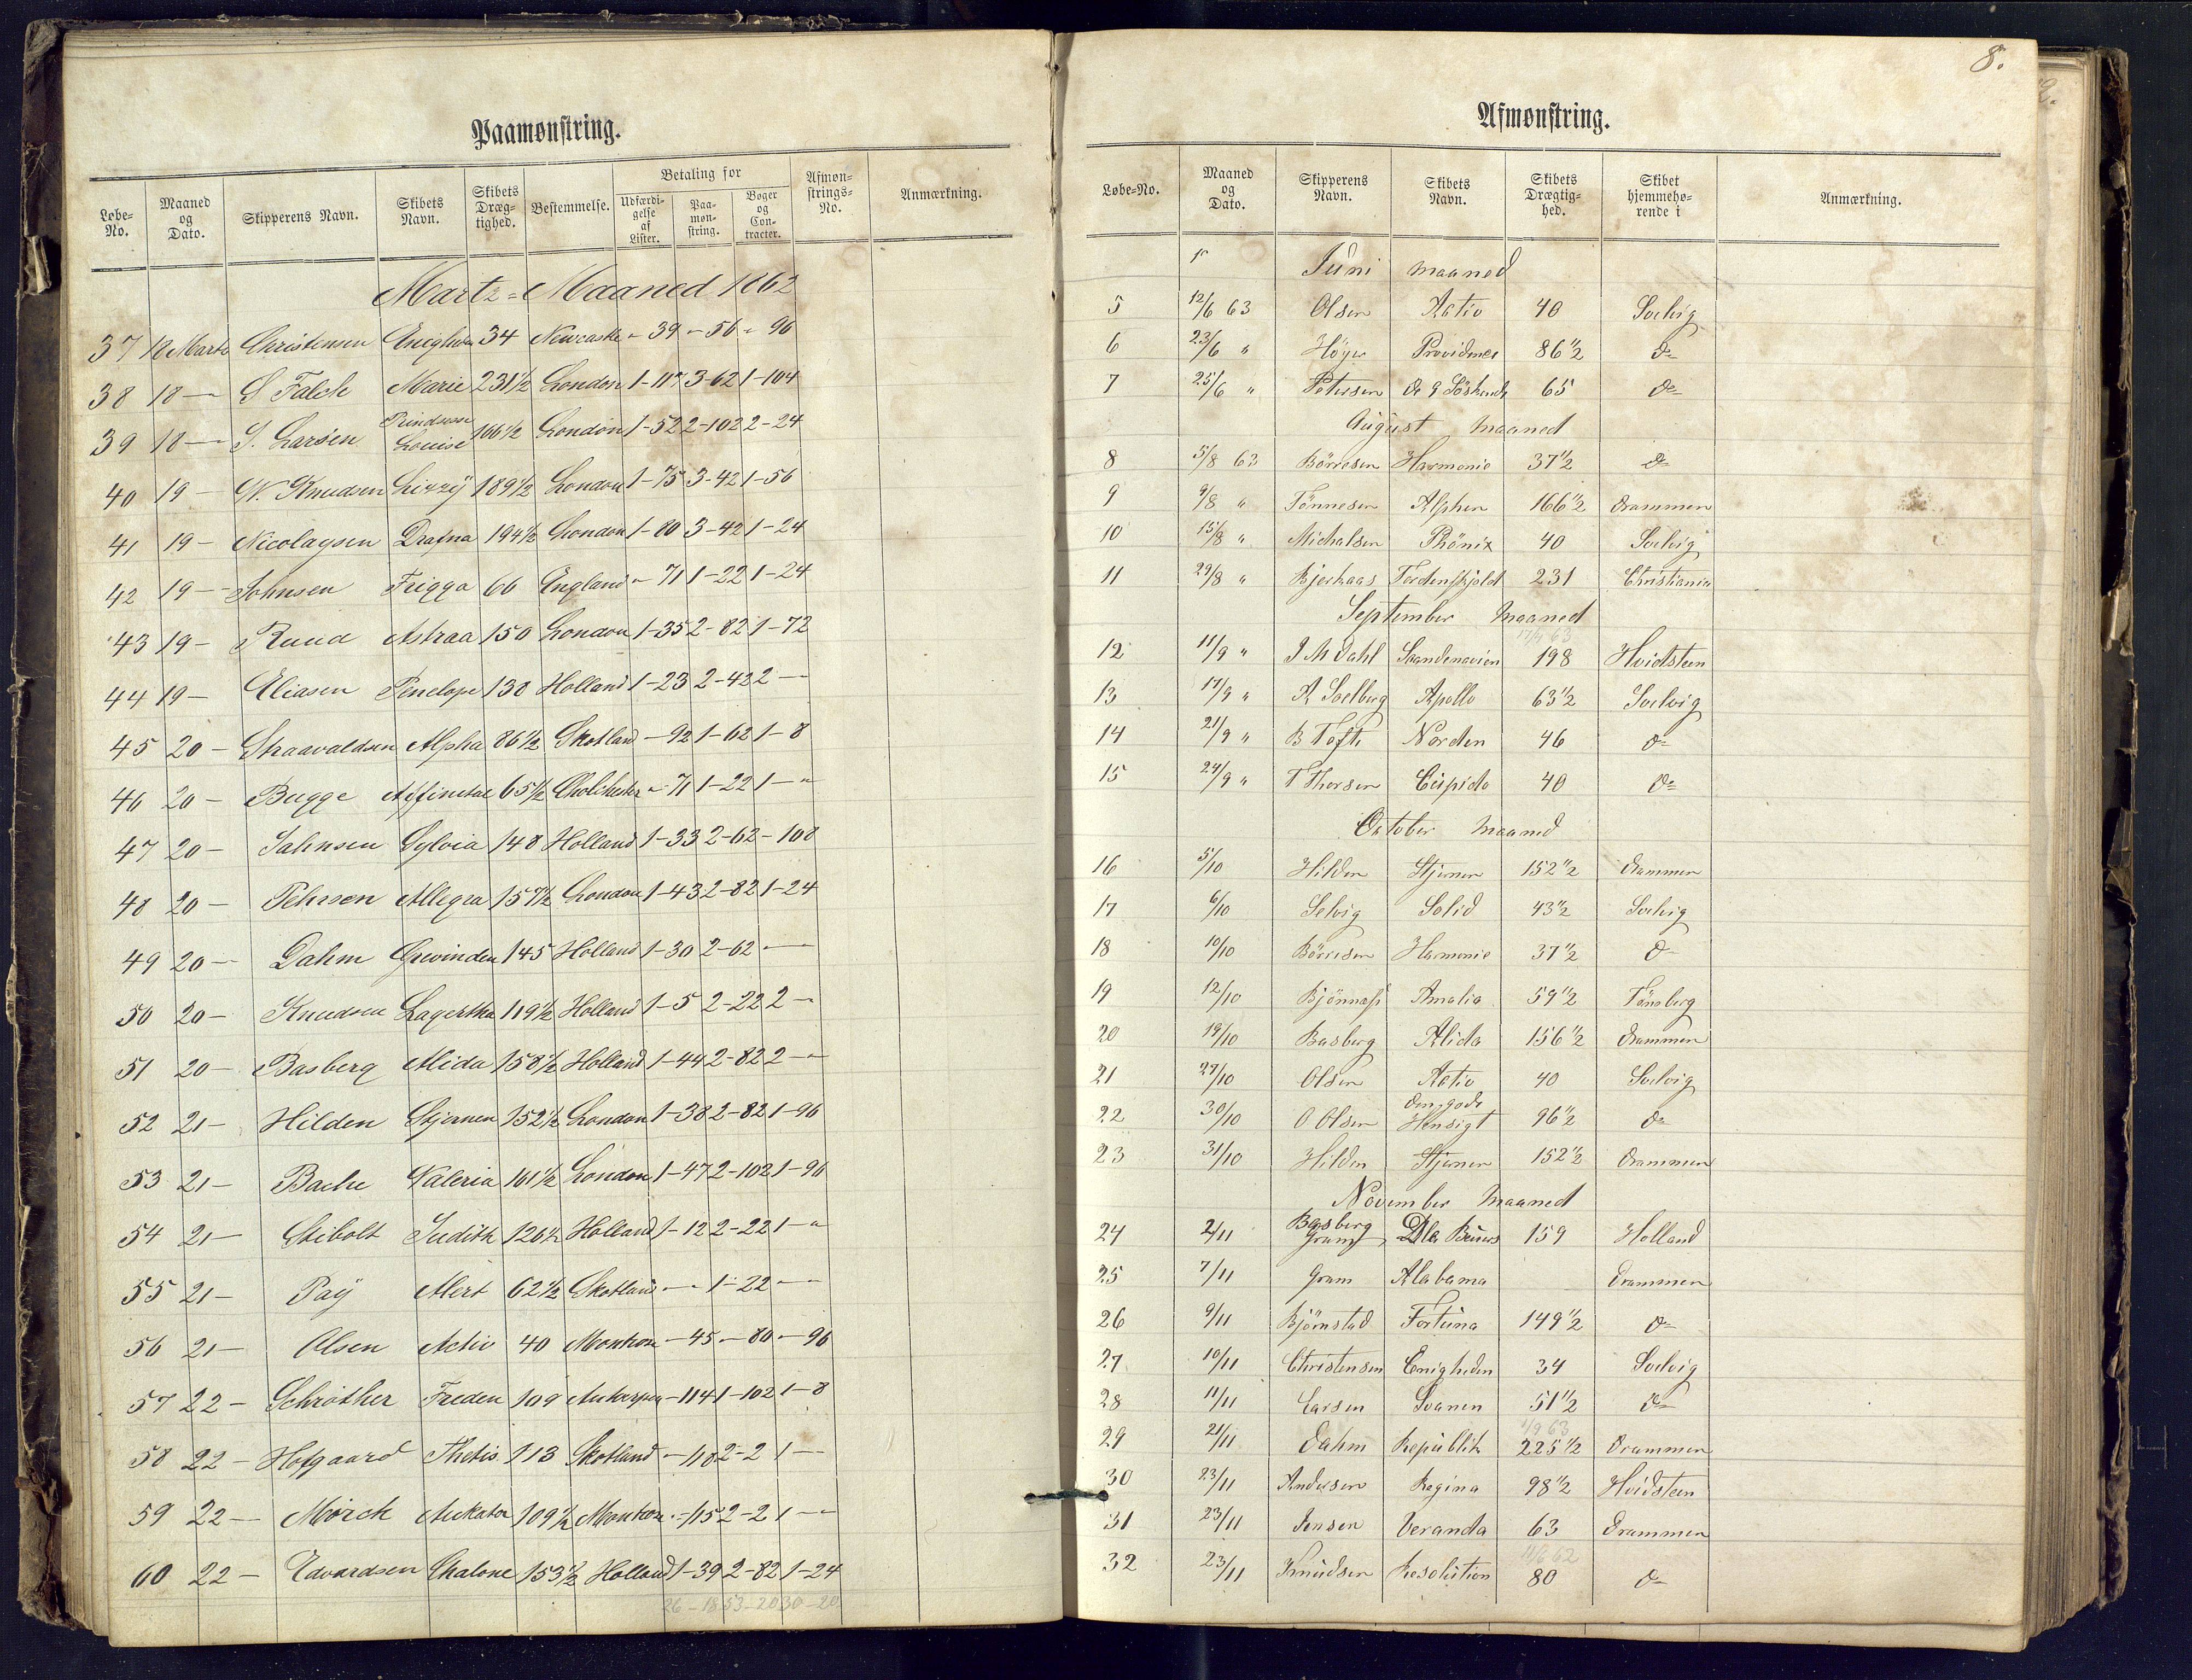 Paamønstring.
Løbe-No. Maaned og Dato. Skipperens Navn. Skibets Navn. Skibets Dræg-tighed. Bestemmelse. Betaling for Udfærdi-gelse af Lister. Paa-møn-string. Bøger og Con-tracter. Afmøn-strings-No. Anmærkning.
Martz=Maaned 1862
37 18 Marts Christensen Enighed 34 Newcastle " 39 - 56 - 96
38 18 — S Falck Marie 231½ London 1-117 3-62 1-104
39 18 — S. Larsen Prindsesse Louise 166½ London 1-52 2-102 2-24
40 19 — N. Knudsen Lizzÿ 189½ London 1-75 3-42 1-56
41 19 — Nicolaysen Drafna 194½ London 1-80 3-42 1-24
42 19 — Johnsen Frigga 66 England " 71 1-22 1-24
43 19 — Ruud Astraa 150 London 1-35 2-82 1-72
44 19 — Eliasen Penelope 138 Holland 1-23 2-42 2 —
45 20 — Straavaldsen Alpha 86½ Skotland — 92 1-62 1-8
46 20 — Bugge 65½ Cholchester " 71 1-22 1 — "
47 20 — Jahnsen Sylvia 148 Holland 1-33 2-62 - 108
48 20 — Pehrsen Allegra 157½ London 1-43 2-82 1-24
49 20 — Dahm Grevinden 145 Holland 1-30 2-62 —
50 20 — Knudsen Lagertha 119½ Holland 1-5 2-22 2 — "
51 20 — Basberg Alida 158½ Holland 1-44 2-82 2 — "
52 21 — Hilden Stjernen 152½ London 1-38 2-82 1-96
53 21 — Bache Valeria 161½ London 1-47 2-102 1-96
54 21 — Stibolt Judith 126½ Holland 1-12 2-22 1 — "
55 21 — Paÿ Alert 62½ Skotland — 1-22 —
56 21 — Olsen Activ 40 Montrose — 45 — 80 — 96
57 22 — Schrøther Freden 109 Antwerpen — 114 1-102 1-8
58 22 — Hofgaard Thetis 113 Skotland — 118 2-2 1 —
59 22 — Mørch 109½ Montrose — 115 2-2 1 —
60 22 — Edvardsen Chalone 153½ Holland 1-39 2-82 1-24
26 - 18 53 - 20 30 - 20
8.
Afmønstring.
Løbe-No. Maaned og Dato. Skipperens Navn. Skibets Navn. Skibets Drægtig-hed. Skibet hjemmehø-rende i Anmærkning.
Juni maaned
5 12/6 63 Olsen Activ 40 Svelvig
6 23/6 " Höyer Providence 86½ do
7 25/6 " Petersen De 9 Söskende 65 do
August maaned
8 5/8 63 Börresen Harmonie 37½ do
9 9/8 " Tönnesen Alphen 166½ Drammen
10 15/8 " Michalsen Phönix 40 Svelvig
11 29/8 " Bjerkaas Tordenskjold 231 Christiania
September maaned
12 11/9 " J M Dahl Skandenavien 198 Hvidsteen
13 17/9 " A Solberg Apollo 63½ Svelvig
14 21/9 " B Tofte Norden 46 do
15 24/9 " T Thorsen Cupido 40 do
October maaned
16 5/10 Hilden Stjernen 152½ Drammen
17 6/10 Selvig Solid 43½ Svelvig
18 10/10 Börresen Harmonie 37½ do
19 12/10 Bjönness Amalia 59½ Tönsberg
20 19/10 Basberg Alida 156½ Drammen
21 27/10 Olsen Activ 40 Svelvig
22 30/10 O Olsen Den gode Hensigt 96½ do
23 31/10 Hilden Stjernen 152½ Drammen
November maaned
24 2/11 Basberg Gram 159 Holland
25 7/11 Gram Alabama Drammen
26 9/11 Björnstad Fortuna 149½ do
27 10/11 Christensen Enigheden 34 Svelvig
28 11/11 Larsen Svanen 51½ do
29 21/11 Dahm Republik 225½ Drammen
30 23/11 Andersen Regina 98½ Hvidsteen
31 23/11 Jensen Veranda 63 Drammen
32 23/11 Knudsen Resolution 80 do